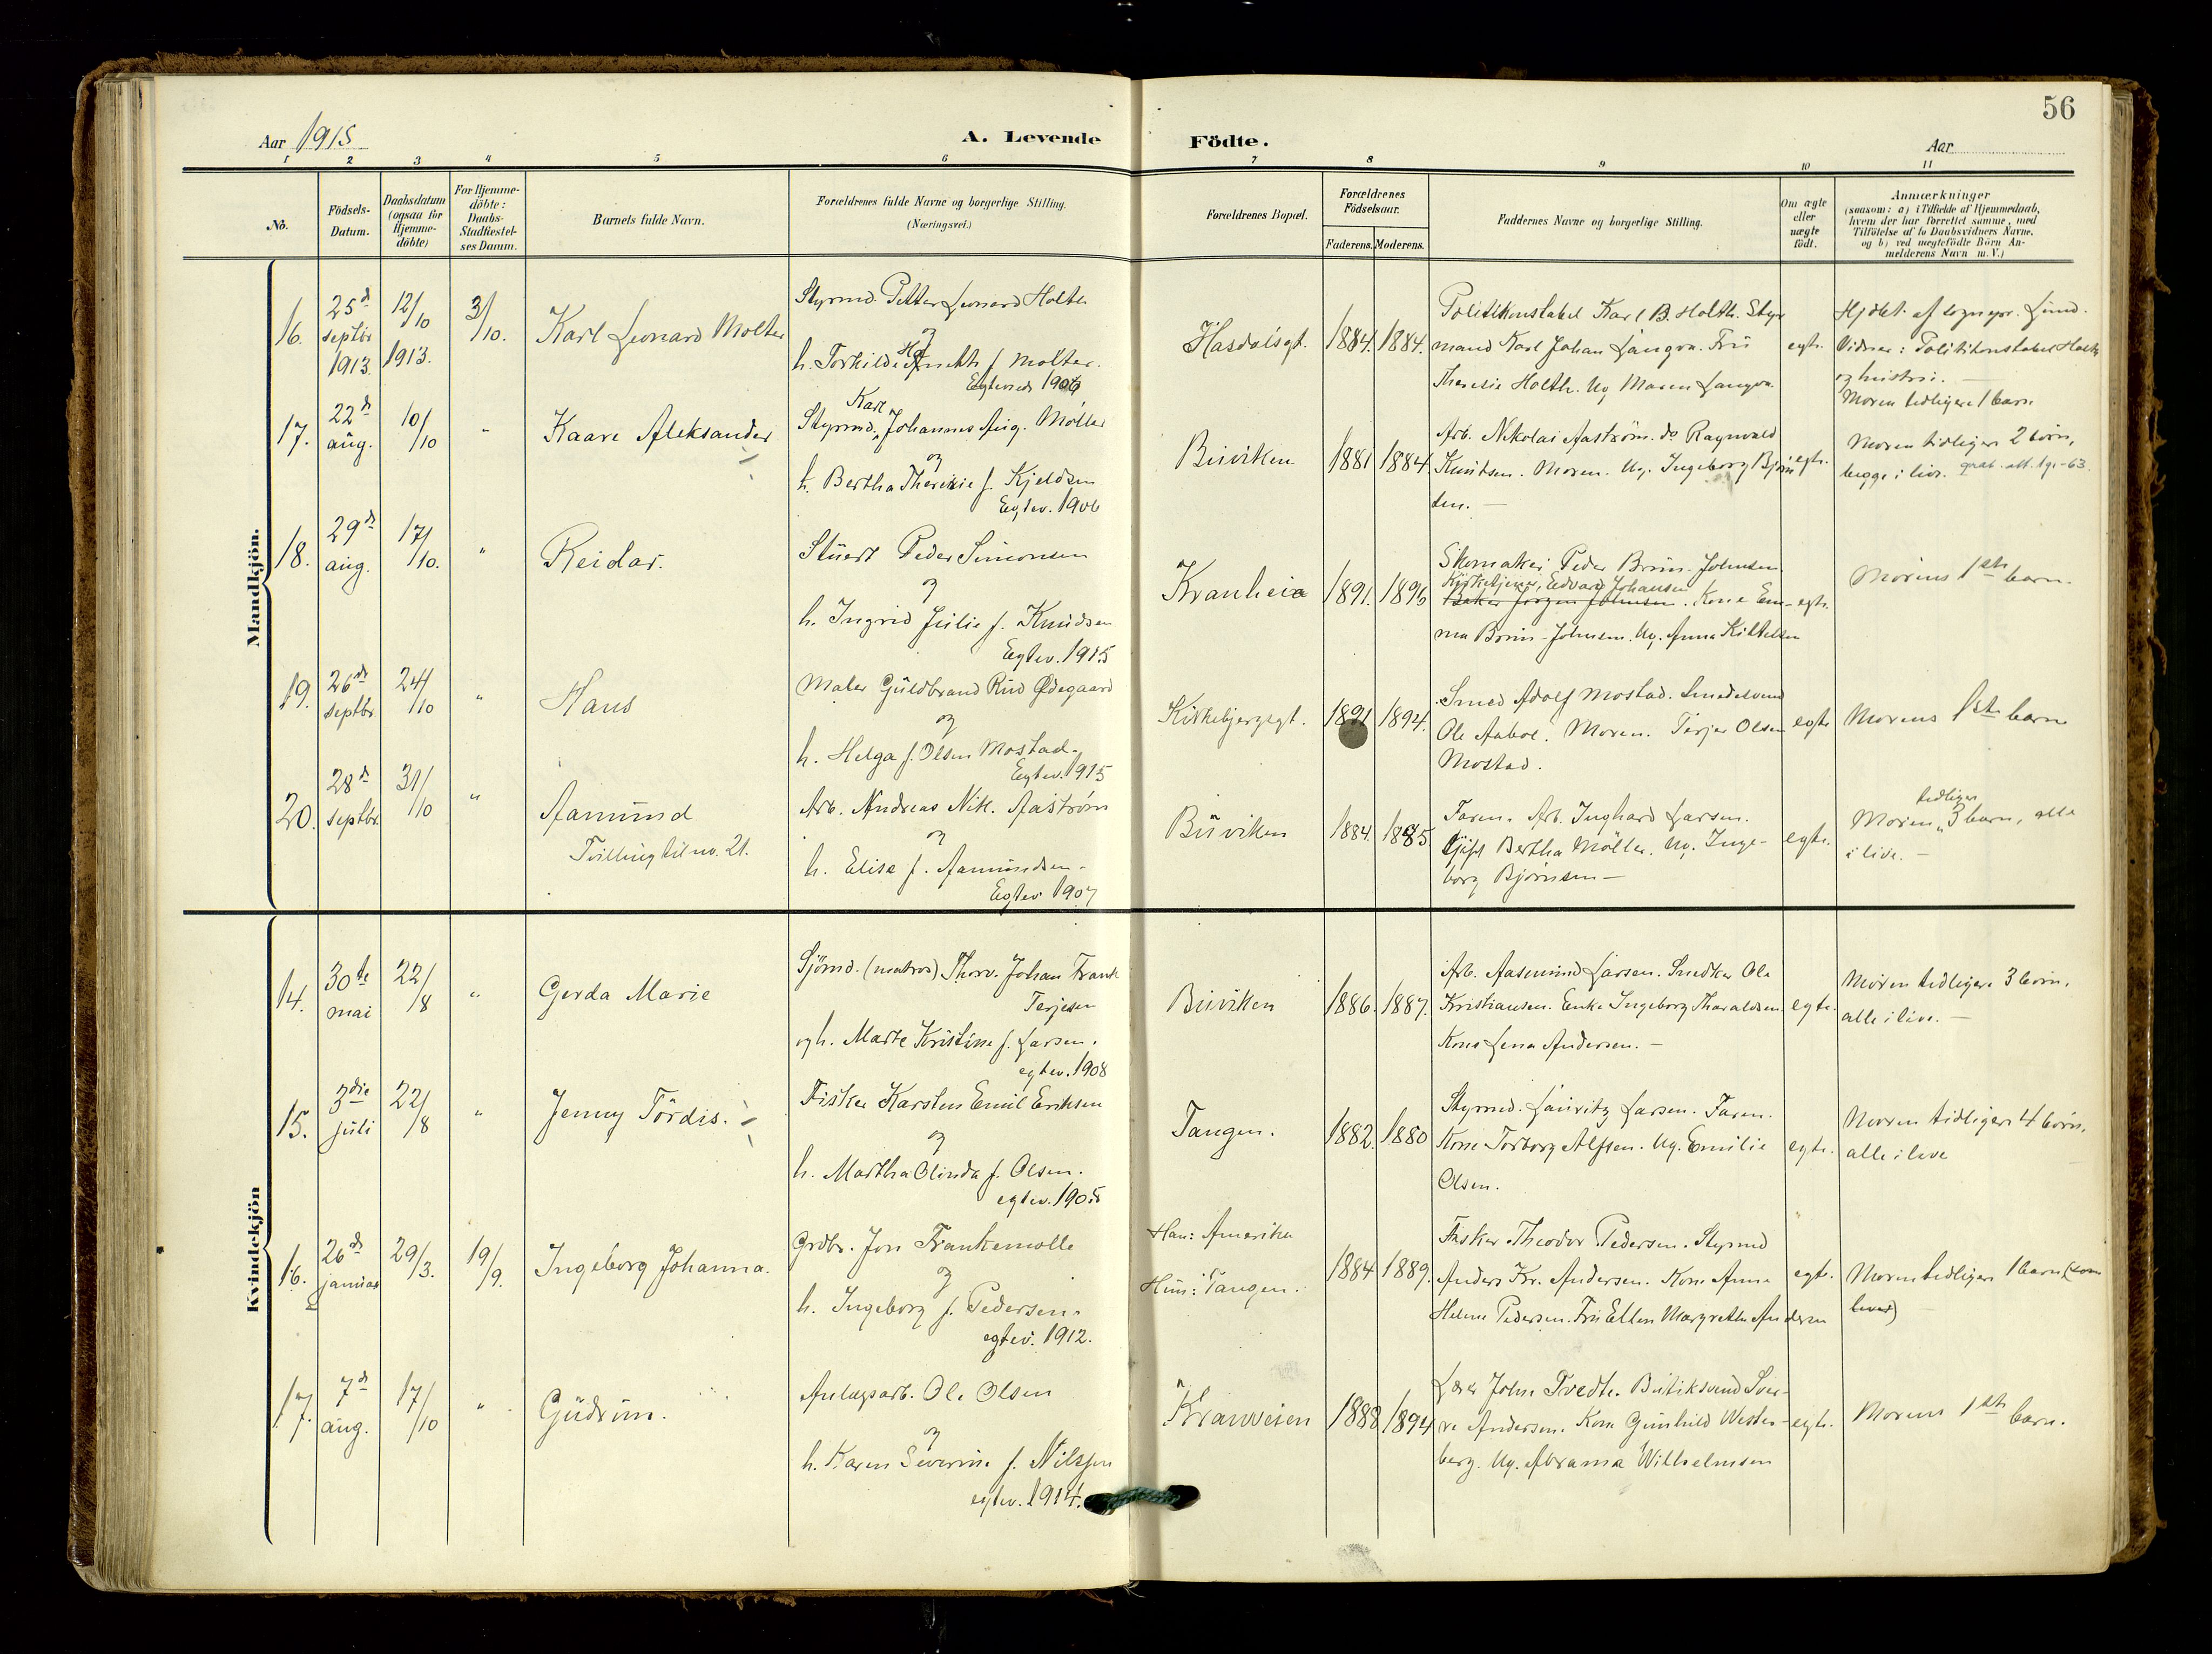 56
Aar 1915
A. Levende Födte.
Aar
1 2 3 4 5 6 7 8 9 10 11
No.
Födsels-
Datum.
Daabsdatum
(ogsaa for
Hjemme-
döbte)
For Hjemme-
döbte:
Daabs-
Stadfæstel-
ses Datum.
Barnets fulde Navn.
Forældrenes fulde Navne og borgerlige Stilling.
(Næringsvei.)
Forældrenes Bopæl.
Forældrenes
Födselsaar.
Faderens. Moderens.
Faddernes Navne og borgerlige Stilling.
Om ægte
eller
uægte
födt.
Anmærkninger
(saasom: a) i Tilfælde af Hjemmedaab,
hvem der har forrettet samme, med
Tilföielse af to Daabsvidners Navne,
og b) ved uægtefödte Börn An-
melderens Navn m. V.)
Mandkjön.
16.
25d
septbr
1913.
12/10
1913.
3/10.
Karl Leonard Molter
Styrmd. Petter Leonard Holth
og
h. Torhilde f. Molter.
Egteviede 1906
Hasdalsgt.
1884. 1884.
Politikonstabel Karl B. Holth. Styr
mand Karl Johan Langva. Frü
Theresie Holth. Ug Maren Langva.
egte.
Hjdbt. af sognepr. Lund.
Vidner: Politikonstabel Holth
og hustru. —
Moren tidligere 1 barn
17.
22d
aug.
10/10
"
Kaare Aleksander
Karl
Styrmd. Johannes Aug. Möller
og
h. Bertha Theresie f. Kjeldsen
Egtev. 1906
Buviken
1881 1884.
Arb. Nikolai Aaström. do Ragnvald
Knudsen. Moren. Ug. Ingeborg Björn
sen. —
egte.
Moren tidligere 2 börn,
begge i live.
18.
29d
aug.
17/10.
"
Reidar.
Stuert Peder Simonsen
og
h. Ingrid Julie f. Knudsen
Egtev. 1915
Kranheia
1891. 1896
Skomaker Peder Brun-Johnsen
Kirketjener, Edvard Johansen
Baker Jørgen Johnsen. Kone Em-
ma Brun-Johnsen. Ug. Anna Kittelsen
egte.
Morens 1ste barn.
19.
26de
septbr.
24/10
"
Hans
Maler Guldbrand Rud Ødegaard
og
h. Helga f. Olsen Mostad.
Egtev. 1915
Kirkebjerggt.
1891 1894.
Smed Adolf Mostad. Smedesvend
Ole Aabol. Moren. Terjer Olsen
Mostad.
egte
Morens 1ste barn
20.
28d
septbr.
31/10
"
Aamund
Tvilling til no. 21.
Arb. Andreas Nik. Aaström
og
h. Elise f. Aamundsen.
Egtev 1907
Buviken
1884. 1885
Faren. Arb. Inghard Larsen.
Gift Bertha Möller. Ug. Inge-
borg Björnsen —
egte.
tidligere
Moren 3 barn, alle
i live. —
Kvindekjön
14.
30te
mai
22/8
"
Gerda Marie
Sjömd. (matros) Thorv. Johan Frank
Terjesen
og h. Marte Kristine f. Larsen.
egtev. 1908
Buviken
1886. 1887.
Arb. Aasmund Larsen. Snedker Ole
Kristiansen. Enke Ingeborg Tharaldsen
Kone Lena Andersen. —
egte.
Moren tidligere 3 börn.
alle i live. —
15.
3die
juli
22/8
"
Jenny Tördis.
Fisker Karsten Emil Eriksen
og
h. Martha Olinda f. Olsen.
egtev. 1905
Tangen.
1882. 1880
Styrmd. Lauritz Larsen. Faren.
Kone Torborg Alfsen. Ug. Emilie
Olsen.
egte.
Moren tidligere 4 börn.
alle i live
16.
26de
januar
29/3.
19/9.
Ingeborg Johanna.
Grdbr. Jon Frankemolle
og
h. Ingeborg f. Pedersen.
egtev. 1912.
Han: Amerika
Hun: Tangen.
1884 1889.
Fisker Theodor Pedersen. Styrmd
Anders Kr. Andersen. Kone Anna
Helene Pedersen. Fru Ellen Margrethe Andersen
egte.
Moren tidligere 1 barn (som
lever)
17.
7d
aug.
17/10
"
Gudrun.
Anlægsarb. Ole Olsen
og
h. Karen Severine f. Nilssen
egtev. 1914.
Kranveien
1888 1894
Lærer John Tvedte. Butiksvend Sver-
re Andersen. Kone Gunhild Wester-
berg. Ug. Abrama Wilhelmsen
egte.
Morens 1ste barn.